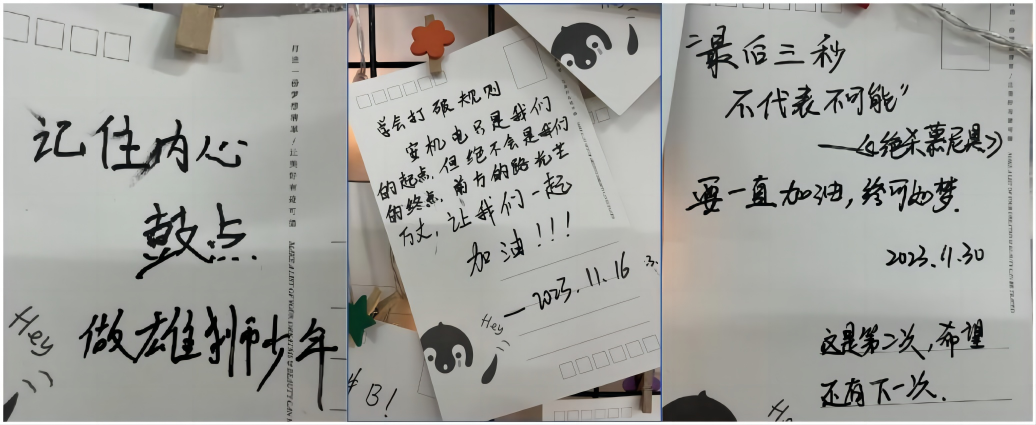 记住内心
鼓点.
做雄狮少年
月造一份梦想清单/让美好有迹可循
MAKE A LIST OF YOUR DREAMS SO BEAUTY CAN
Hey
学会打破规则
安机电只是我们
的起点,但绝不会是我们
的终点,前方的路光芒
万丈,让我们一起
加油!!!
—2023.11.16
Hey
B!
"最后三秒
不代表不可能"
——《绝杀慕尼黑》
要一直加油,终可如梦.
2023.11.30
这是第二次,希望
还有下一次.
He